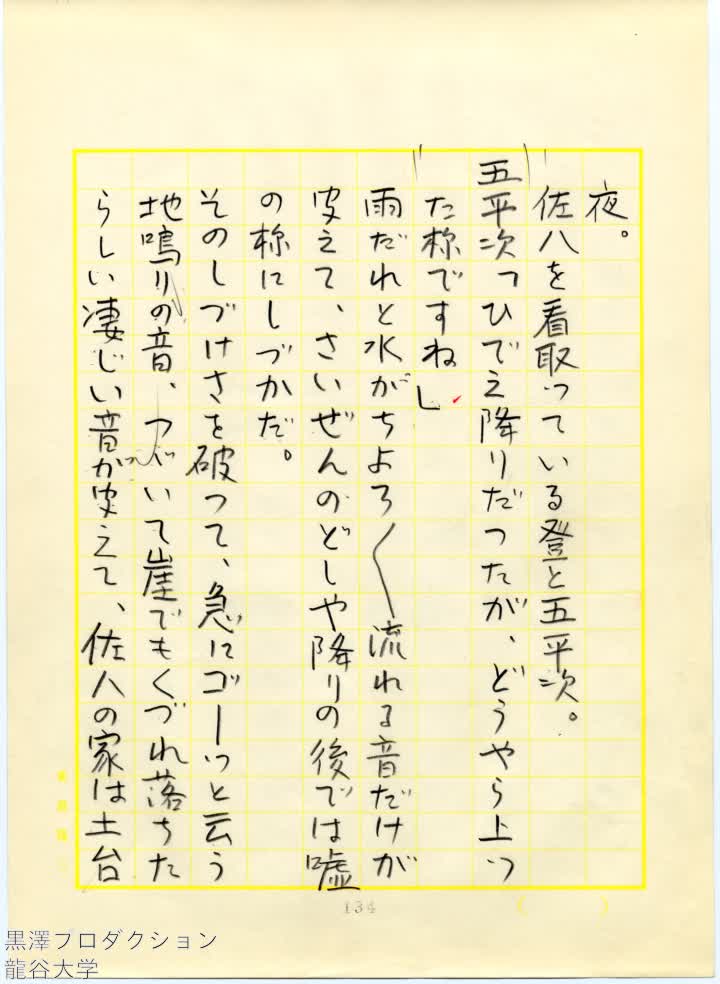 夜。
佐八を看取っている登と五平次。
五平次「ひでえ降りだつたが、どうやら上つ
た様ですね」
雨だれと水がちよろ〱流れる音だけが
変えて、さいぜんのどしや降りの後では嘘
の様にしづかだ。
そのしづけさを破つて、急にゴーッと云う
地鳴りの音、つづいて崖でもくづれ落ちた
らしい凄じい音が変えて、佐八の家は土台
134
黒澤プロダクション
龍谷大学